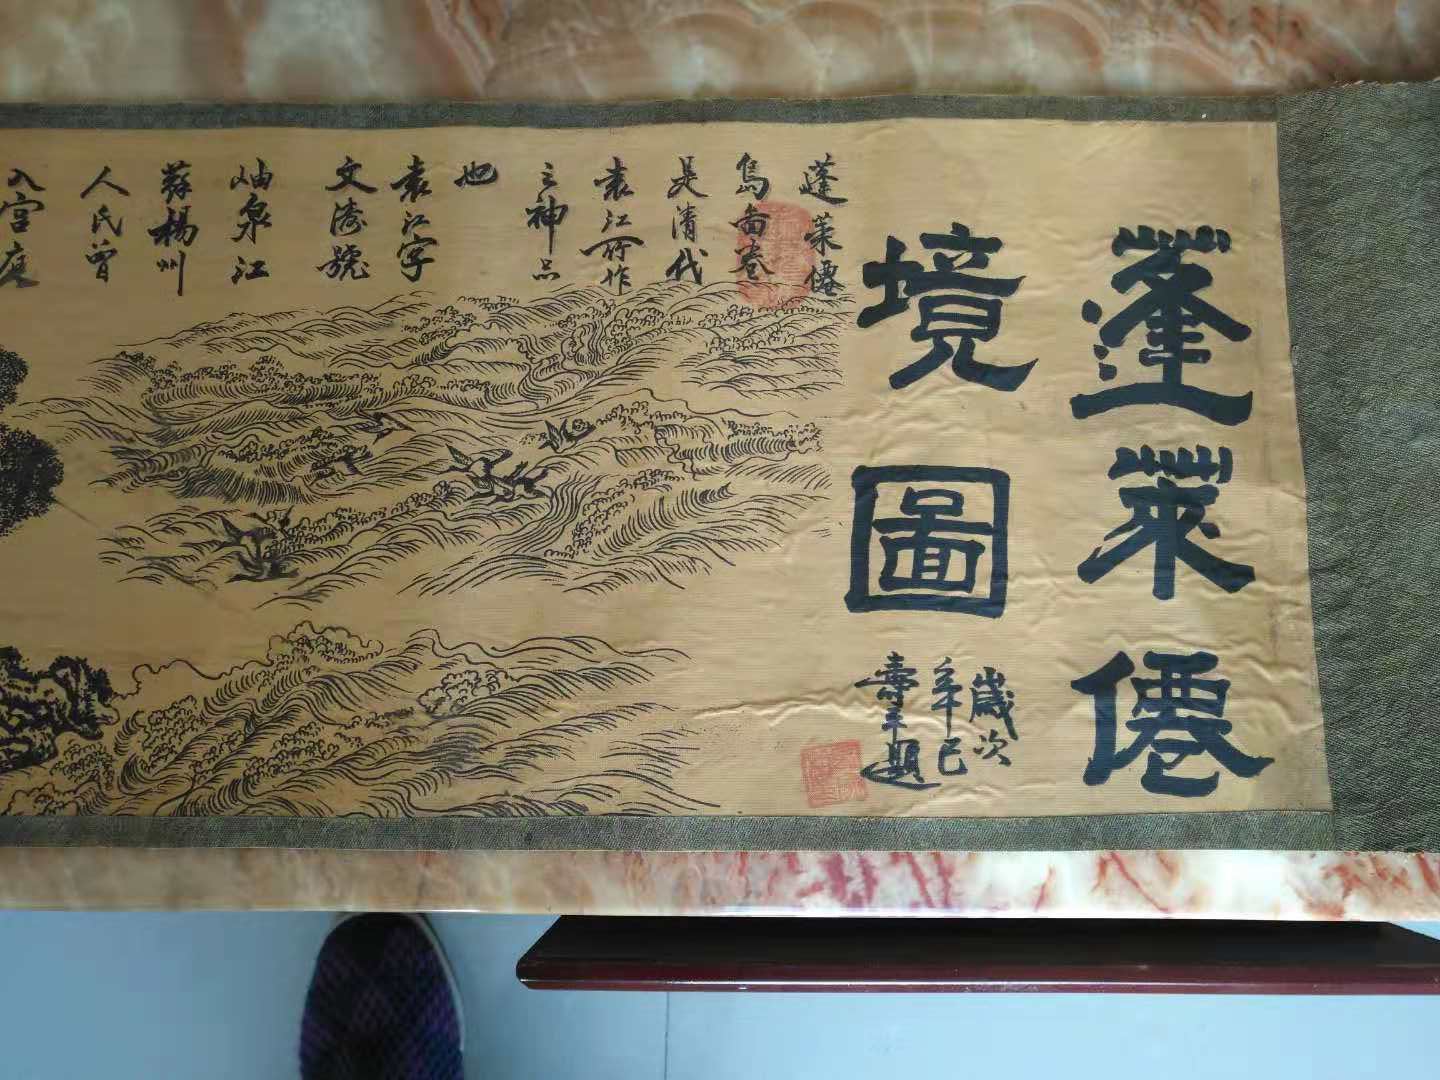 蓬萊僊
境圖
歲次
辛巳
壽平題
蓬萊僊
島啚卷
是清代
袁江所作
之神品
也
袁江字
文濤號
岫泉江
蘇楊州
人民曾
入宮庭